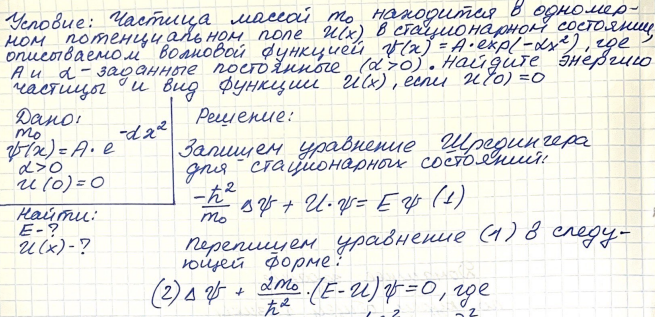 Условие: Частица массой m₀ находится в одномер-
ном потенциальном поле U(x) в стационарном состоянии,
описываемом волновой функцией ψ(x) = A·exp(-αx²), где
A и α - заданные постоянные (α>0). Найдите энергию
частицы и вид функции U(x), если U(0)=0
Дано:
m₀
ψ(x) = A·e^{-αx²}
α>0
U(0)=0
Найти:
E-?
U(x)-?
Решение:
Запишем уравнение Шредингера
для стационарных состояний:
-ħ²/m₀ Δψ + U·ψ = Eψ (1)
Перепишем уравнение (1) в следу-
ющей форме:
(2) Δψ + 2m₀/ħ² ·(E-U)ψ=0, где